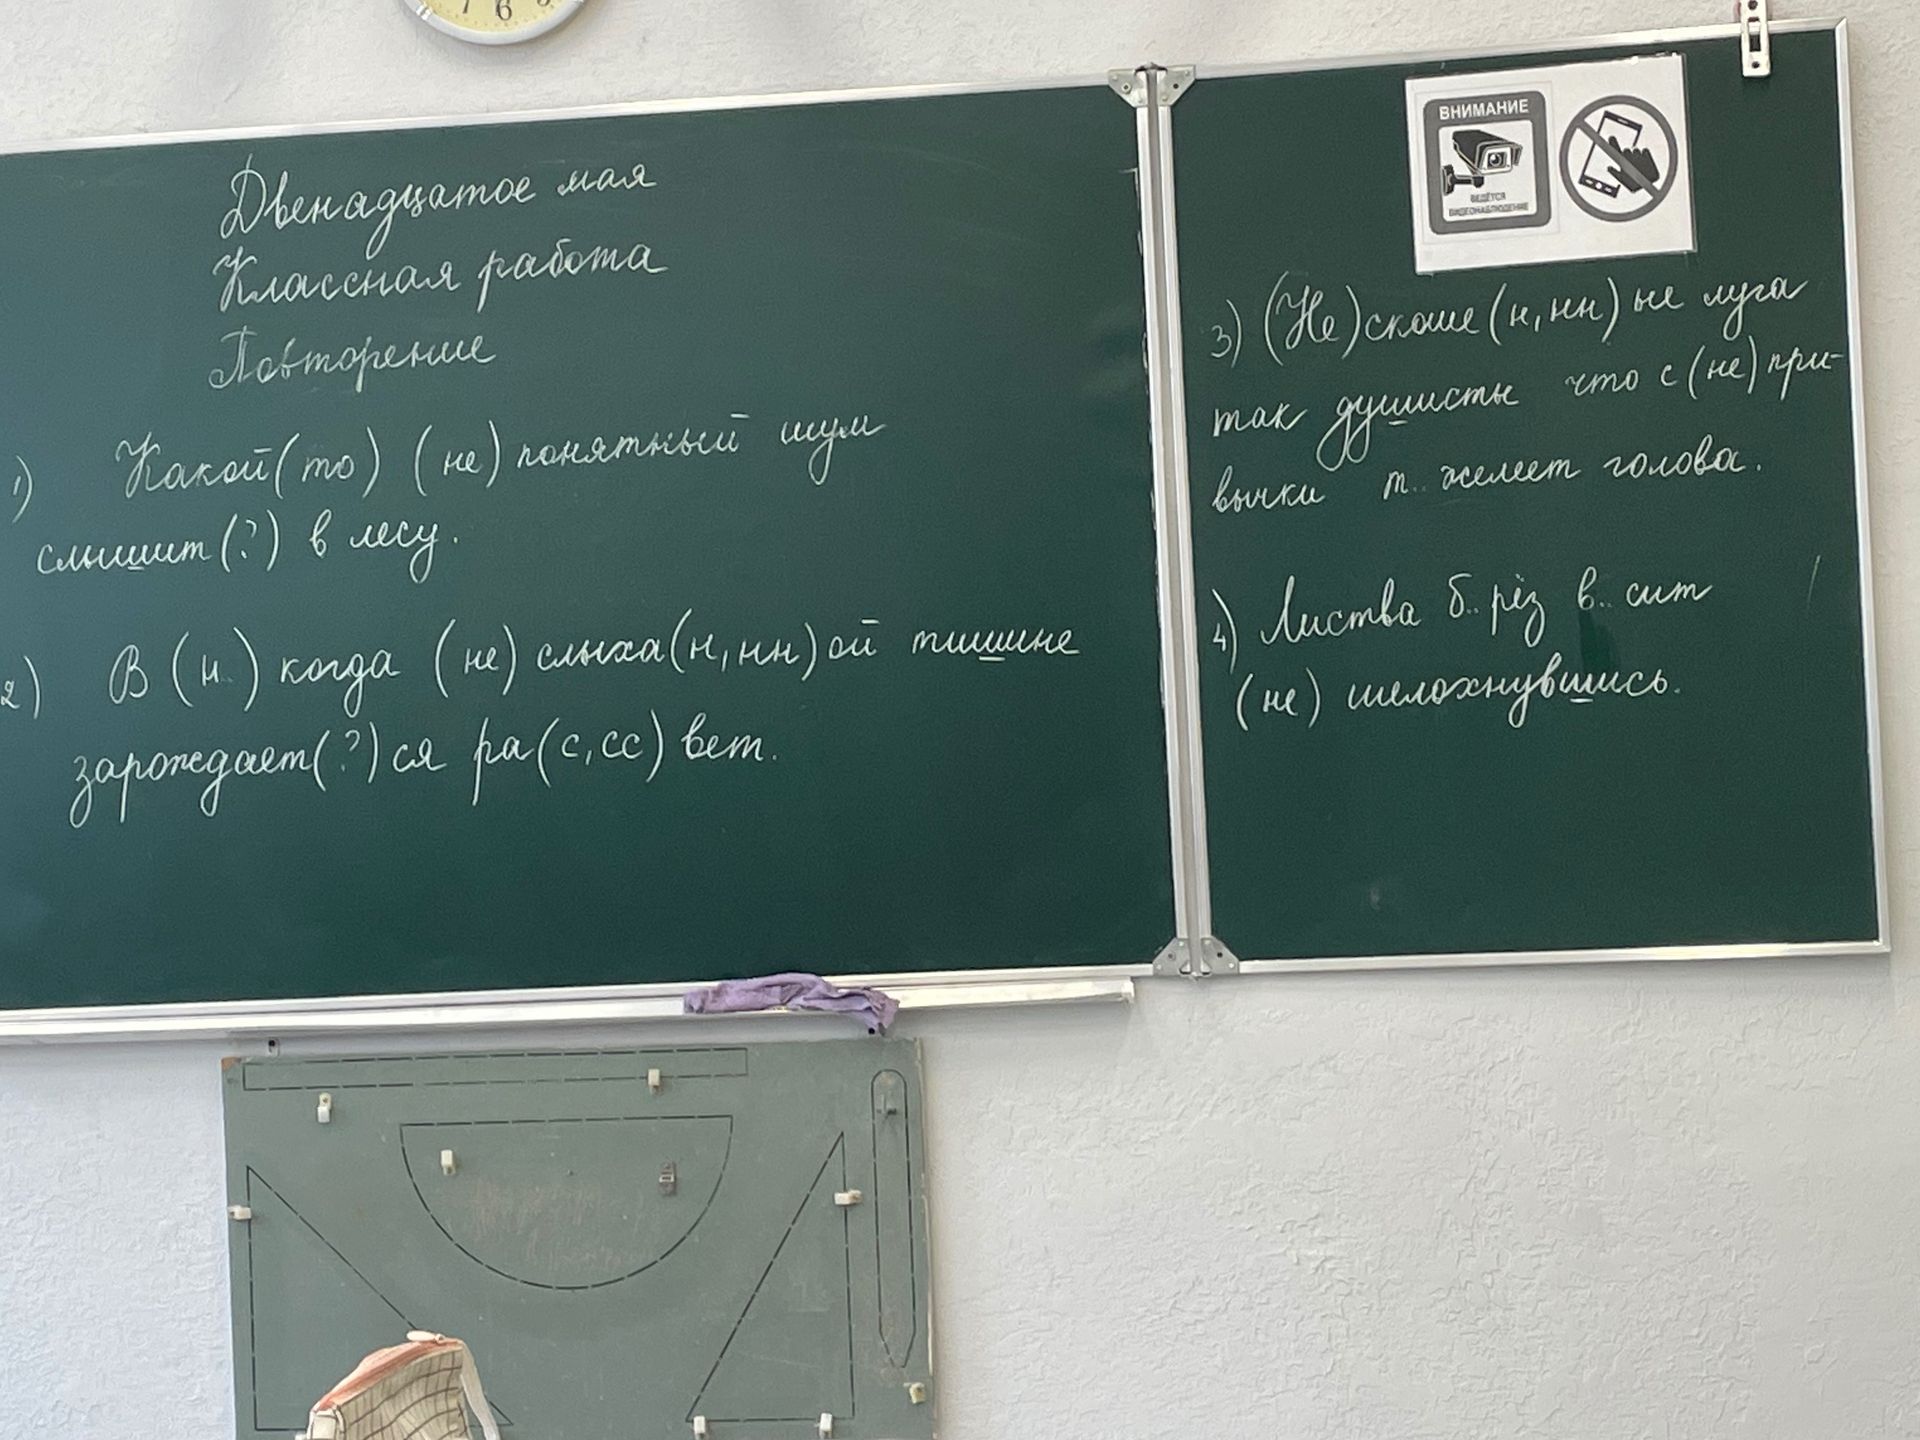 7 6 5
Двенадцатое мая
Классная работа
Повторение
1) Какой(то) (не) понятный шум
слышит(?) в лесу.
2) В (н..) когда (не) слыха(н, нн) ой тишине
зарождает(?) ся ра(с, сс) вет.
ВНИМАНИЕ
ВЕДЁТСЯ
ВИДЕОНАБЛЮДЕНИЕ
3) (Не) скоше (н, нн) ые луга
так душисты что с (не) при-
вычки т.. желеет голова.
4) Листва б.. рёз в.. сит
(не) шелохнувшись.